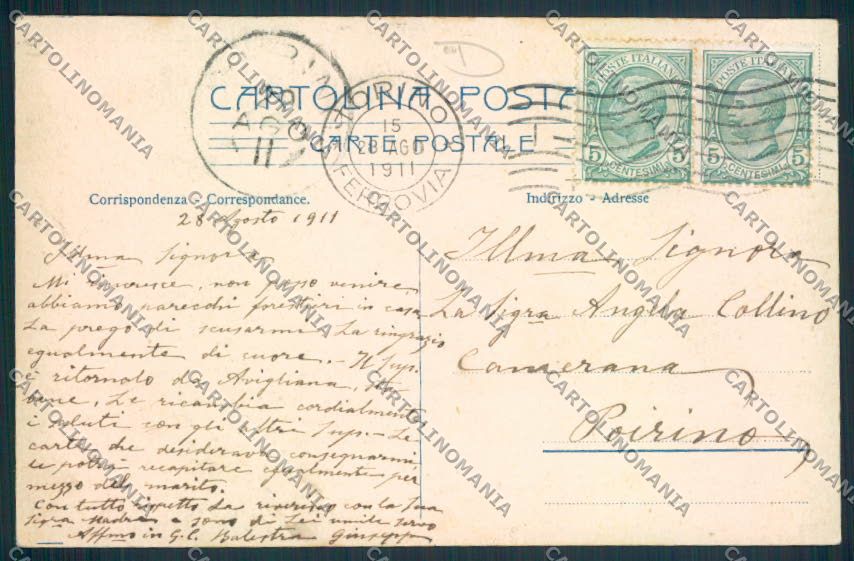 CARTOLINA POSTA
CARTE POSTALE
TORINO
15
28 AGO
1911
FERROVIA
AGO
11
POSTE ITALIANE
5 CENTESIMI 5
POSTE ITALIANE
5 CENTESIMI 5
Corrispondenza - Correspondance.
Indirizzo - Adresse
28 Agosto 1911
Illma Signora
Mi rincresce, non posso venire,
abbiamo parecchi forestieri in casa
La prego di scusarmi La ringrazio
egualmente di cuore. - Il Sup.
è ritornato da Avigliana, sta
bene, Le ricambia cordialmente
i saluti con gli altri Sup. - Le
carte che desiderava consegnarmi
le potrà recapitare egualmente per
mezzo del marito.
Con tutto rispetto La riverisco con la Sua
Sigra Madre e sono di Lei umile servo
Affmo in G. C. Balestra Giuseppe
Illma Signora
La Sigra Angela Collino
Camerana
Poirino
CARTOLINOMANIA